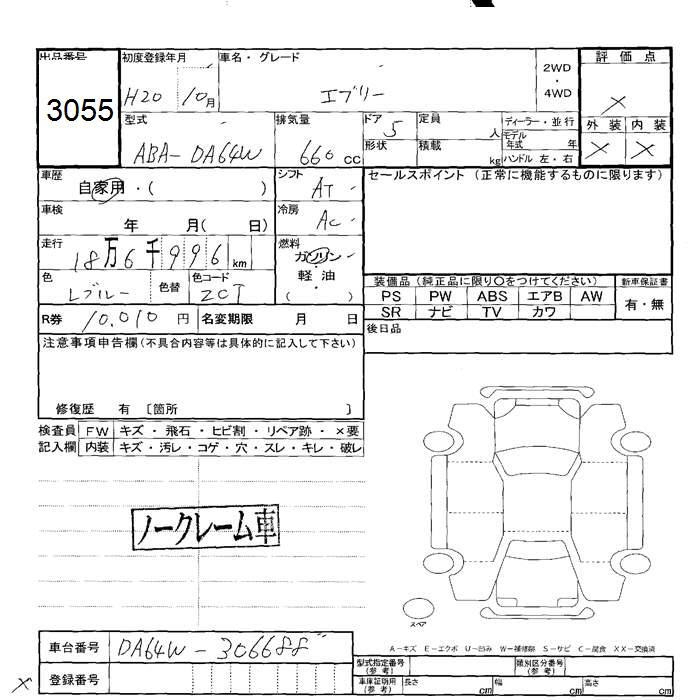 出品番号 初度登録年月 車名・グレード 2WD ・ 4WD 評価点
3055 H20 10月 エブリー ×
型式 排気量 ドア 定員 ディーラー・並行 外装 内装
ABA-DA64W 660cc 5 人 モデル年式 年 × ×
形状 積載 kg ハンドル 左・右
車歴 自家用・( ) シフト AT セールスポイント (正常に機能するものに限ります)
車検 年 月( 日) 冷房 AC
走行 18万6千996km 燃料 ガソリン・軽・油 ( )
色 Lブルー 色替 色コード ZCT
装備品 (純正品に限り○をつけてください) 新車保証書
PS PW ABS エアB AW 有・無
SR ナビ TV カワ
R券 10,010円 名変期限 月 日 後日品
注意事項申告欄(不具合内容等は具体的に記入して下さい)
修復歴 有 〔箇所 〕
検査員 FW キズ・飛石・ヒビ割・リペア跡・×要
記入欄 内装 キズ・汚レ・コゲ・穴・スレ・キレ・破レ
ノークレーム車
スペア
車台番号 DA64W-306688
A-キズ E-エクボ U-凹み W-補修跡 S-サビ C-腐食 XX-交換済
型式指定番号(参考) 類別区分番号(参考)
× 登録番号 車庫証明用(参考) 長さ cm 幅 cm 高さ cm